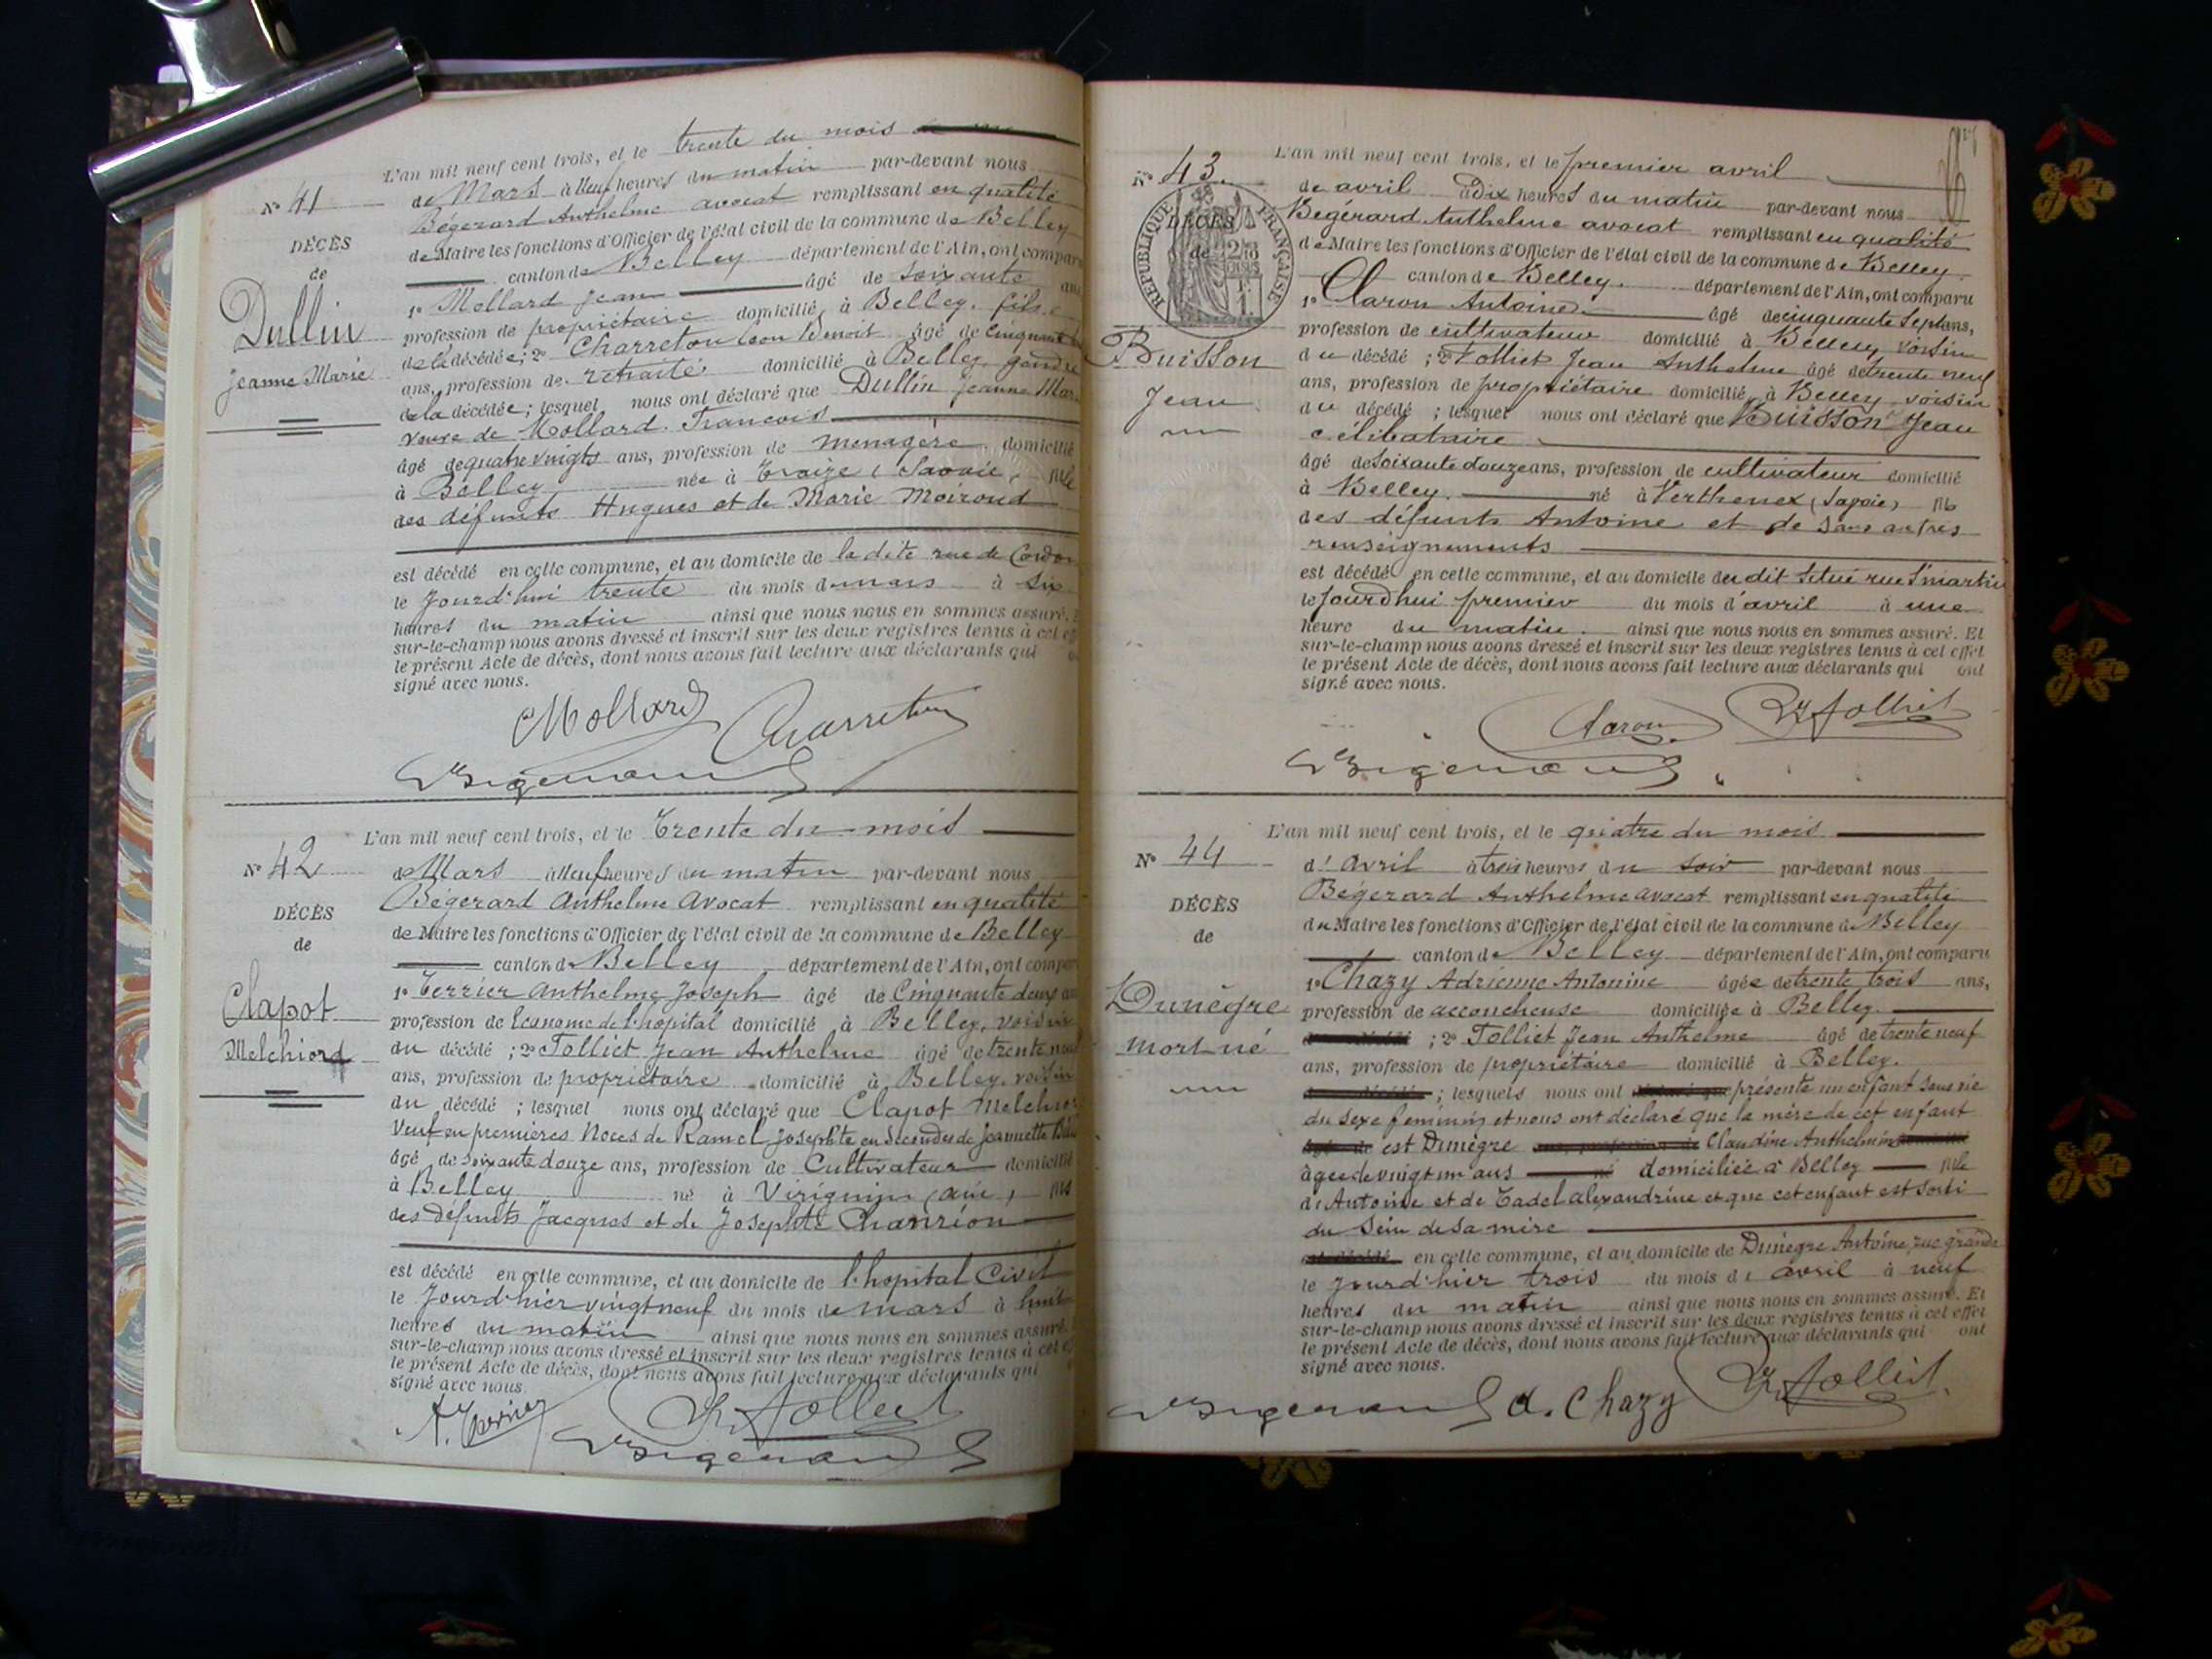 L'an mil neuf cent trois, et le trente du mois
N° 41
de Mars à Neuf heures du matin par-devant nous
Bégerard Anthelme avocat remplissant en qualité
DÉCÈS
de Maire les fonctions d'Officier de l'état civil de la commune de Belley
de
canton de Belley département de l'Ain, ont comparu
Dullin
Jeanne Marie
1° Mollard Jean âgé de soixante ans
profession de propriétaire domicilié à Belley. fils
de la décédée; 2° Charreton Léon Benoit âgé de cinquante
ans, profession de retraité domicilié à Belley, gendre
de la décédée; lesquel nous ont déclaré que Dullin Jeanne Mar
veuve de Mollard François
âgé de quatre vingts ans, profession de ménagère, domicilié
à Belley née à Traize (Savoie), fille
des défunts Hugues et de Marie Moiroud
est décédé en cette commune, et au domicile de la dite rue de Cordon
le Jourd'hui trente du mois de mars à six
heures du matin ainsi que nous nous en sommes assuré.
sur-le-champ nous avons dressé et inscrit sur les deux registres tenus à cet
le présent Acte de décès, dont nous avons fait lecture aux déclarants qui
signé avec nous.
Mollard Charreton
Bégerard
L'an mil neuf cent trois, et le Trente du mois
N° 42
de Mars à Neuf heures du matin par-devant nous
Bégerard Anthelme Avocat remplissant en qualité
DÉCÈS
de Maire les fonctions d'Officier de l'état civil de la commune de Belley
de
canton de Belley département de l'Ain, ont compar
Clapot
Melchiord
1° Terrier Anthelme Joseph âgé de Cinquante deux
profession de Econome de l'hopital domicilié à Belley, voisin
du décédé; 2° Tolliet Jean Anthelme âgé de trente neuf
ans, profession de propriétaire domicilié à Belley. voisin
du décédé; lesquel nous ont déclaré que Clapot Melchior
Veuf en premières Noces de Ramel Josephte en secondes de Jeannette
âgé de soixante douze ans, profession de Cultivateur domicilié
à Belley né à Virignin (ain), fils
des défunts Jacques et de Josephte Chanrion
est décédé en cette commune, et au domicile de l'hopital Civil
le Jourd'hier vingt neuf du mois de mars à huit
heures du matin ainsi que nous nous en sommes assuré.
sur-le-champ nous avons dressé et inscrit sur les deux registres tenus à cet
le présent Acte de décès, dont nous avons fait lecture aux déclarants qui
signé avec nous.
A. Terrier Tolliet
Bégerard
L'an mil neuf cent trois, et le premier avril
N° 43.
de avril à Dix heures du matin par-devant nous
Bégérard Anthelme avocat remplissant en qualité
DÉCÈS
de
RÉPUBLIQUE FRANÇAISE
de Maire les fonctions d'Officier de l'état civil de la commune de Belley
canton de Belley. département de l'Ain, ont comparu
Buisson
Jean
1° Claron Antoine âgé de cinquante sept ans,
profession de cultivateur domicilié à Belley voisin
du décédé; 2° Tolliet Jean Anthelme âgé de trente neuf
ans, profession de propriétaire domicilié à Belley voisin
du décédé; lesquel nous ont déclaré que Buisson Jean
célibataire
âgé de soixante douze ans, profession de cultivateur domicilié
à Belley. né à Verthemex (Savoie) fils
des défunts Antoine et de sans autres
renseignements
est décédé en cette commune, et au domicile du dit situé rue St martin
le Jourd'hui premier du mois d'avril à une
heure du matin. ainsi que nous nous en sommes assuré. Et
sur-le-champ nous avons dressé et inscrit sur les deux registres tenus à cet effet
le présent Acte de décès, dont nous avons fait lecture aux déclarants qui ont
signé avec nous.
Claron Tolliet
Bégerard
L'an mil neuf cent trois, et le quatre du mois
N° 44
d'Avril à trois heures du soir par-devant nous
Bégerard Anthelme avocat remplissant en qualité
DÉCÈS
du Maire les fonctions d'Officier de l'état civil de la commune de Belley
de
canton de Belley département de l'Ain, ont comparu
Dunègre
mort né
1° Chazy Adrienne Antonine âgée de trente trois ans,
profession de accoucheuse domiciliée à Belley.
; 2° Tolliet Jean Anthelme âgé de trente neuf
ans, profession de propriétaire domicilié à Belley.
; lesquels nous ont présenté un enfant sans vie
du sexe féminin et nous ont déclaré que la mère de cet enfant
est Dunègre Claudine Anthelmine
âgée de vingt un ans domiciliée à Belley fille
d'Antoine et de Tadel alexandrine et que cet enfant est sorti
du sein de sa mère
en cette commune, et au domicile de Dunègre Antoine, rue grande
le Jourd'hier trois du mois d'avril à neuf
heures du matin ainsi que nous nous en sommes assuré. Et
sur-le-champ nous avons dressé et inscrit sur les deux registres tenus à cet effet
le présent Acte de décès, dont nous avons fait lecture aux déclarants qui ont
signé avec nous.
Bégerard A. Chazy Tolliet